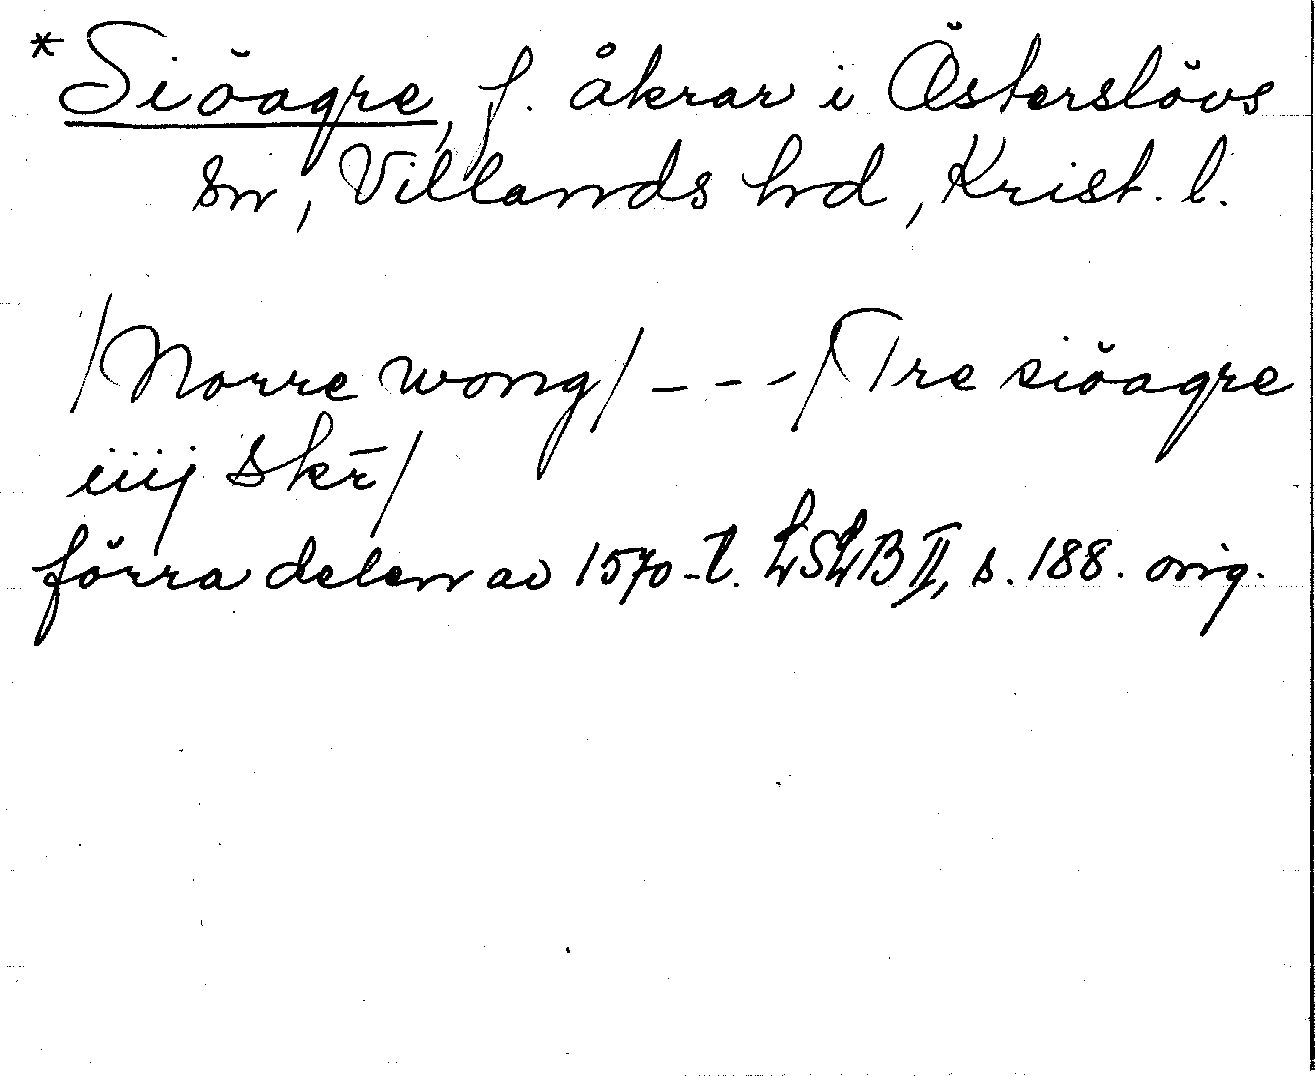 *Siöagre, f. åkrar i Österslövs
sn, Villands hd, Krist. l.
/Norre wong/ - - - /Tre siöagre
iiij skr̄/
förra delen av 1570-t. LSLB II, s. 188. orig.